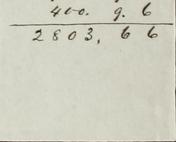 400. 9. 6
2803, 66